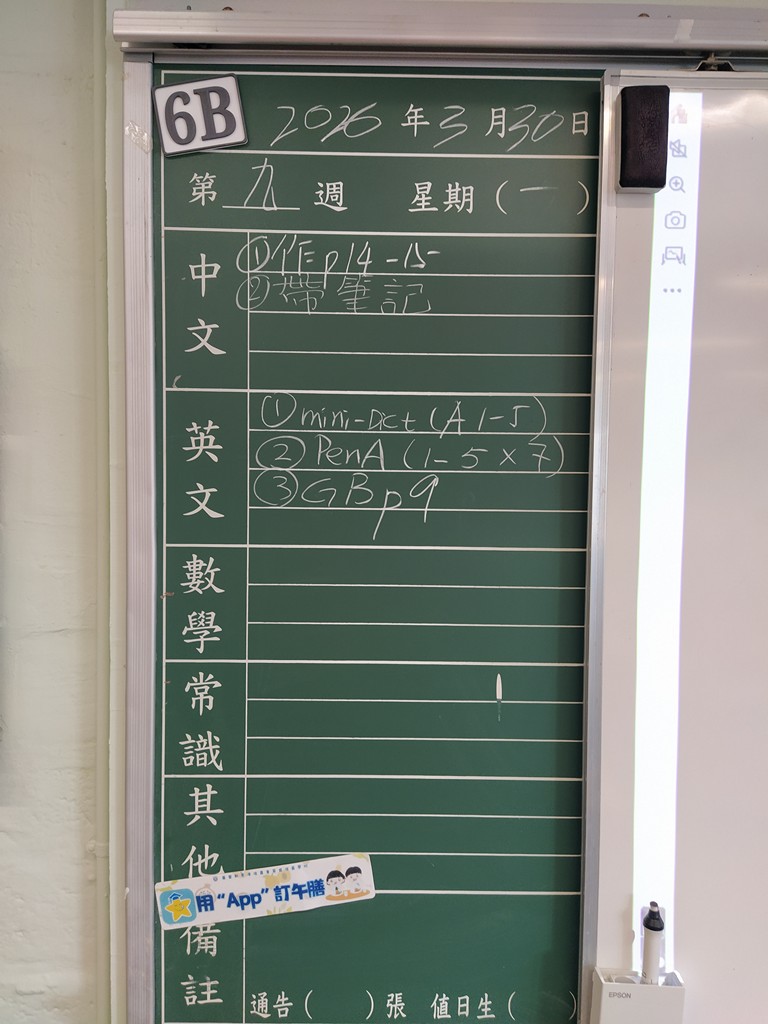 6B
2026年3月30日
第九週 星期(一)
中文
①作p14-15
②帶筆記
英文
①mini-Dict (A 1-5)
②PenA (1-5×7)
③GB p9
數學
常識
其他
用“App”訂午膳
備註
通告( )張 值日生( )
EPSON